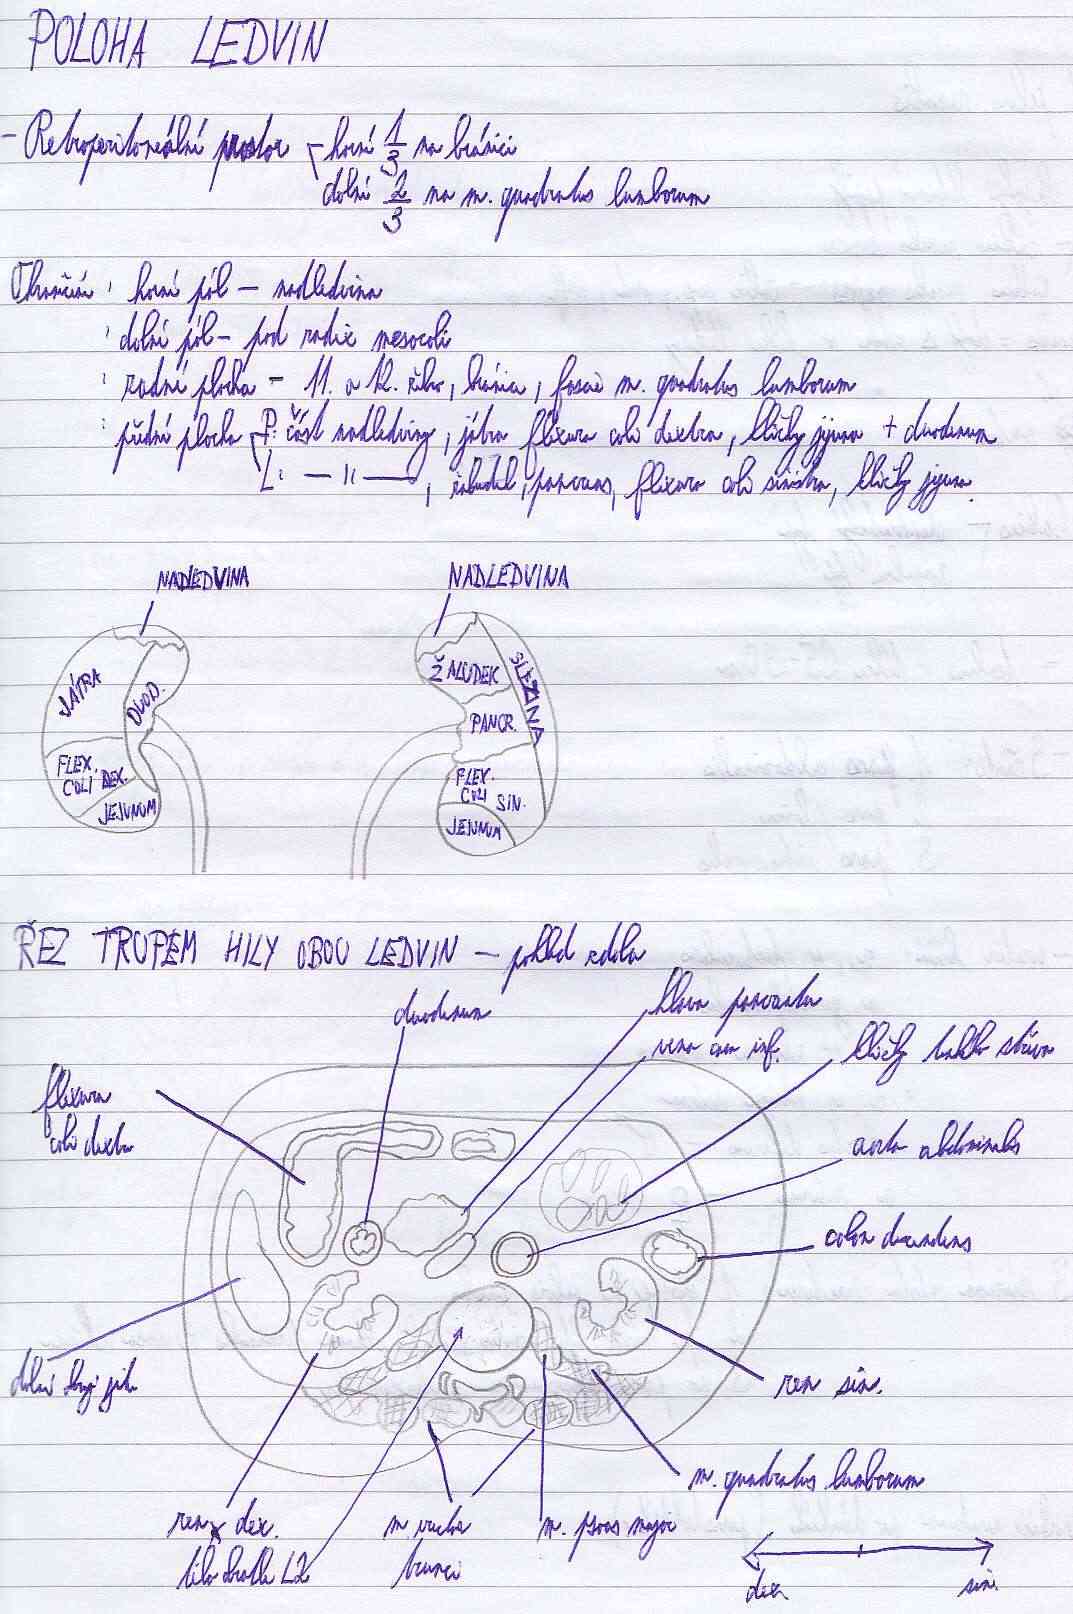 POLOHA LEDVIN
- Retroperitoneální prostor - horní 1/3 na bránici
dolní 2/3 na m. quadratus lumborum
Ohraničení: horní pól - nadledvina
: dolní pól - pod radix mesocoli
: zadní plocha - 11. a 12. žebro, bránice, fascie m. quadratus lumborum
: přední plocha P: část nadledviny, játra flexura coli dextra, kličky jejuna + duodenum
L: — 11 —, žaludek, pancreas, flexura coli sinistra, kličky jejuna
NADLEDVINA
NADLEDVINA
JÁTRA
DUOD.
FLEX. COLI DEX.
JEJUNUM
ŽALUDEK
SLEZINA
PANCR.
FLEX. COLI SIN.
JEJUNUM
ŘEZ TRUPEM HILY OBOU LEDVIN - pohled zdola
duodenum
hlava pancreatu
vena cava inf.
kličky tenkého střeva
flexura
coli dextra
aorta abdominalis
colon descendens
dolní okraj jater
ren sin.
m. quadratus lumborum
ren dex.
m. psoas major
tělo obratle L2
dex
sin.